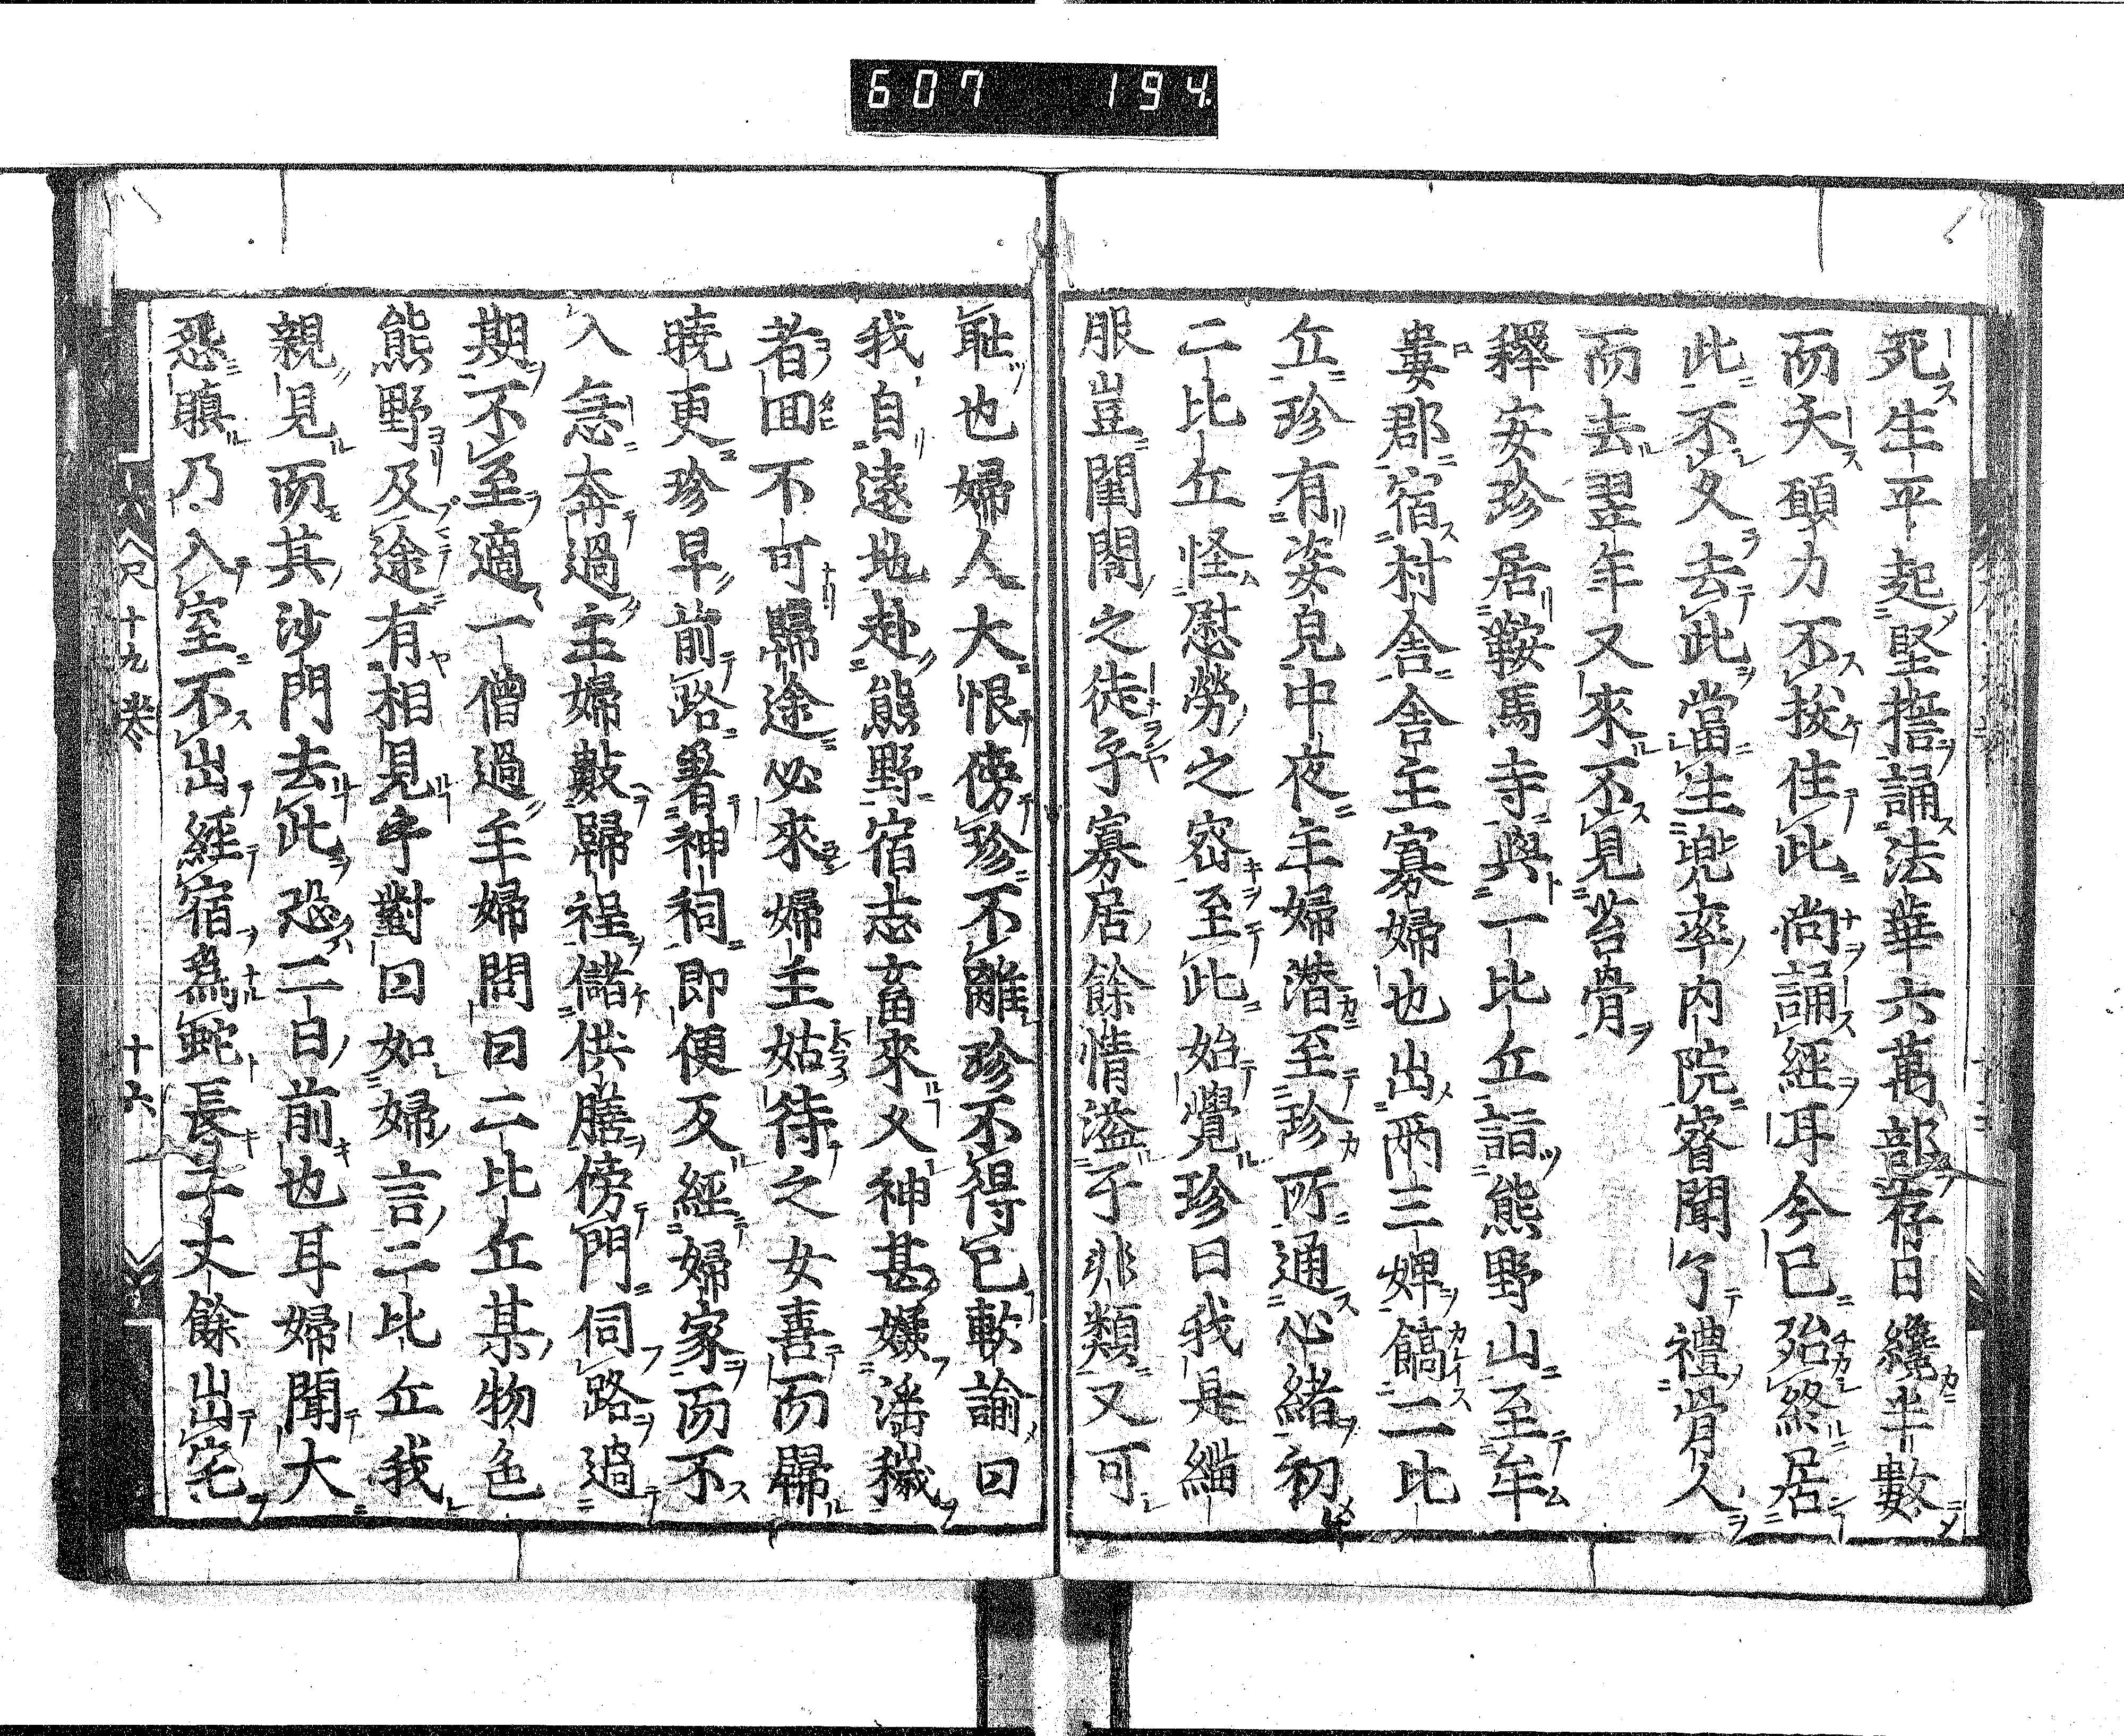 607 194
死生平起堅誓誦法華六萬部存日纔半數
而夭願力不拔住此尚誦經耳今已殆終居
此不久去此當生兜率内院睿聞了禮骨人
而去翌年又來不見苔骨
釋安珍居鞍馬寺與一比丘詣熊野山至牟
婁郡宿村舍舍主寡婦也出兩三婢餉二比
丘珍有姿皃中夜主婦潜至珍所通心緒初
二比丘怪慰勞之密至此始覺珍曰我是緇
服豈閨閤之徒乎寡居餘情溢于非類又可
耻也婦人大恨傍珍不離珍不得已軟諭曰
我自遠地赴熊野宿志畜來乂神甚嫌潘穢
者囬不可歸途必來婦主姑待之女喜而歸
曉更珍早前路署神祠即便反經婦家而不
入急奔過主婦數歸程儲供膳傍門伺路過
期不至適一僧過主婦問曰二比丘某物色
熊野及途有相見乎對曰如婦言二比丘我
親見而其沙門去此恐二日前也耳婦聞大
怨瞋乃入室不出經宿爲蛇長于丈餘出宅
尺 十九巻 十六